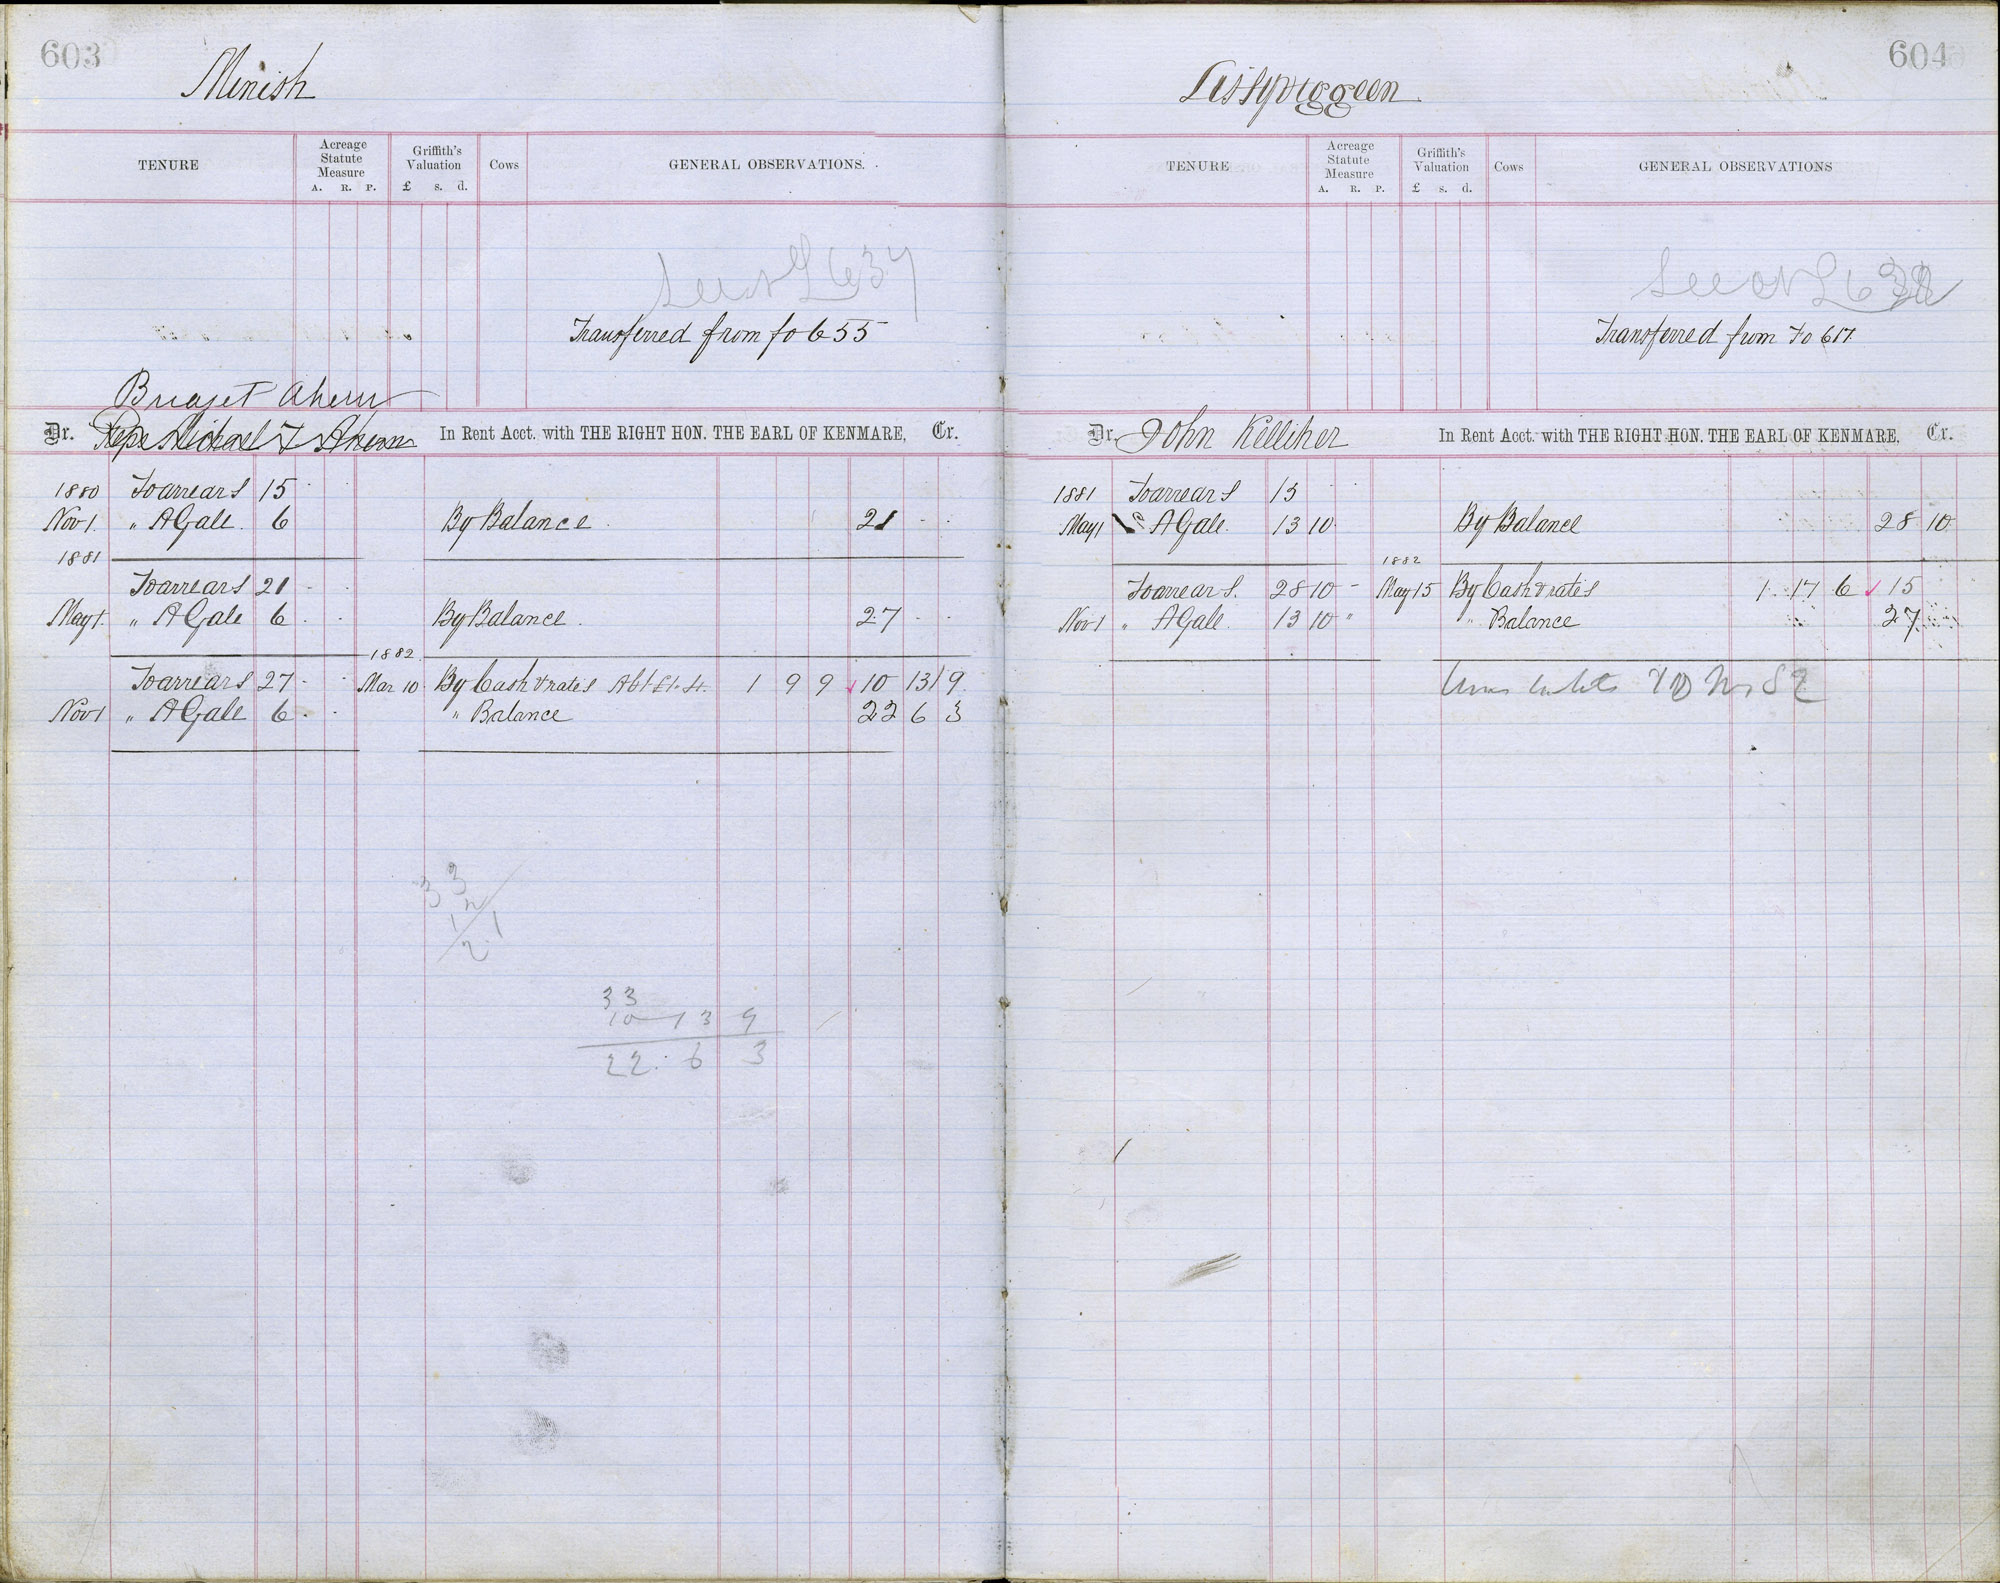 603
Minish
TENURE
Acreage Statute Measure
A. R. P.
Griffith's Valuation
£ s. d.
Cows
GENERAL OBSERVATIONS.
637
Transferred from fo 655
Bridget Ahern
Dr. Reps Michael Ahern In Rent Acct. with THE RIGHT HON. THE EARL OF KENMARE, Cr.
1880 To arrears 15
Nov 1. " A Gale. 6 By Balance 21
1881
To arrears 21
May 1. " A Gale 6 By Balance. 27
1882
To arrears 27 Mar 10. By Cash & rates 1 9 9 10 13 9
Nov 1 " A Gale 6 " Balance 22 6 3
33
12
21
33
10 13 9
22. 6 3
604
Lissyviggeen
TENURE
Acreage Statute Measure
A. R. P.
Griffith's Valuation
£ s. d.
Cows
GENERAL OBSERVATIONS
See
Transferred from Fo 617
Dr. John Kelliher In Rent Acct. with THE RIGHT HON. THE EARL OF KENMARE, Cr.
1881 To arrears 15
May 1 A Gale. 13 10 By Balance 28 10
1882
To arrears. 28 10 May 15 By Cash & rates 1 17 6 15
Nov 1 " A Gale 13 10 " " Balance 27